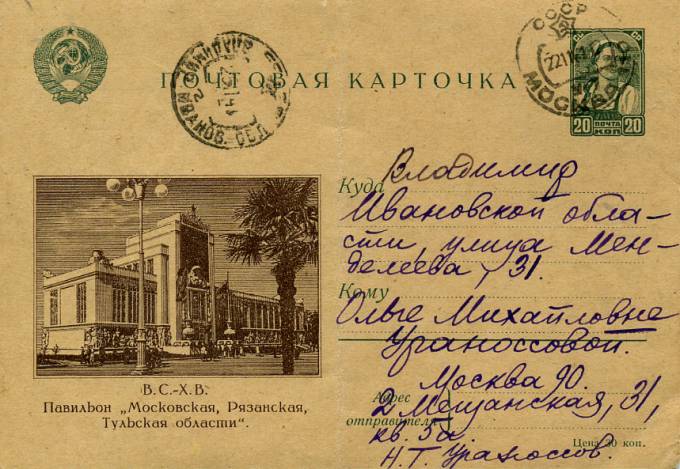 ПОЧТОВАЯ КАРТОЧКА
СССР
МОСКВА
20 ПОЧТА КОП 20
Куда Владимир
Ивановской обла-
сти, улица Мен-
делеева, 31.
Кому
Ольге Михайловне
Ураноссовой.
Москва 90.
Адрес отправителя
2 Мещанская, 31,
кв. 5а.
Н.Т. Ураноссов.
Цена 30 коп.
В.С.-Х.В.
Павильон „Московская, Рязанская,
Тульская области“.